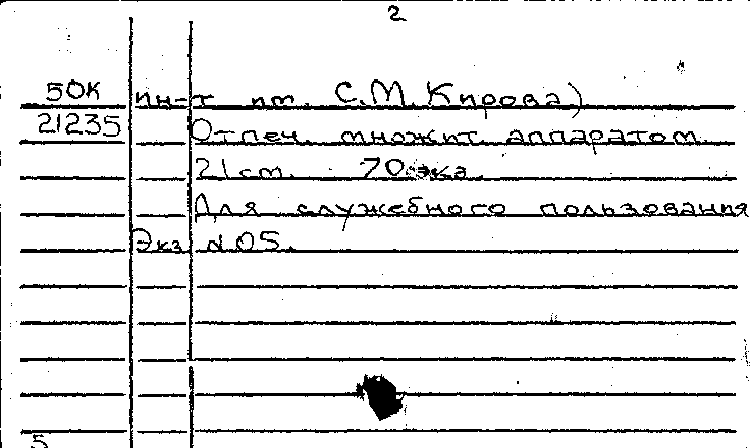 2
50К ин-т им. С.М. Кирова)
21235 Отпеч. множит. аппаратом
21 см. 70 экз.
Для служебного пользования
Экз №05.
5